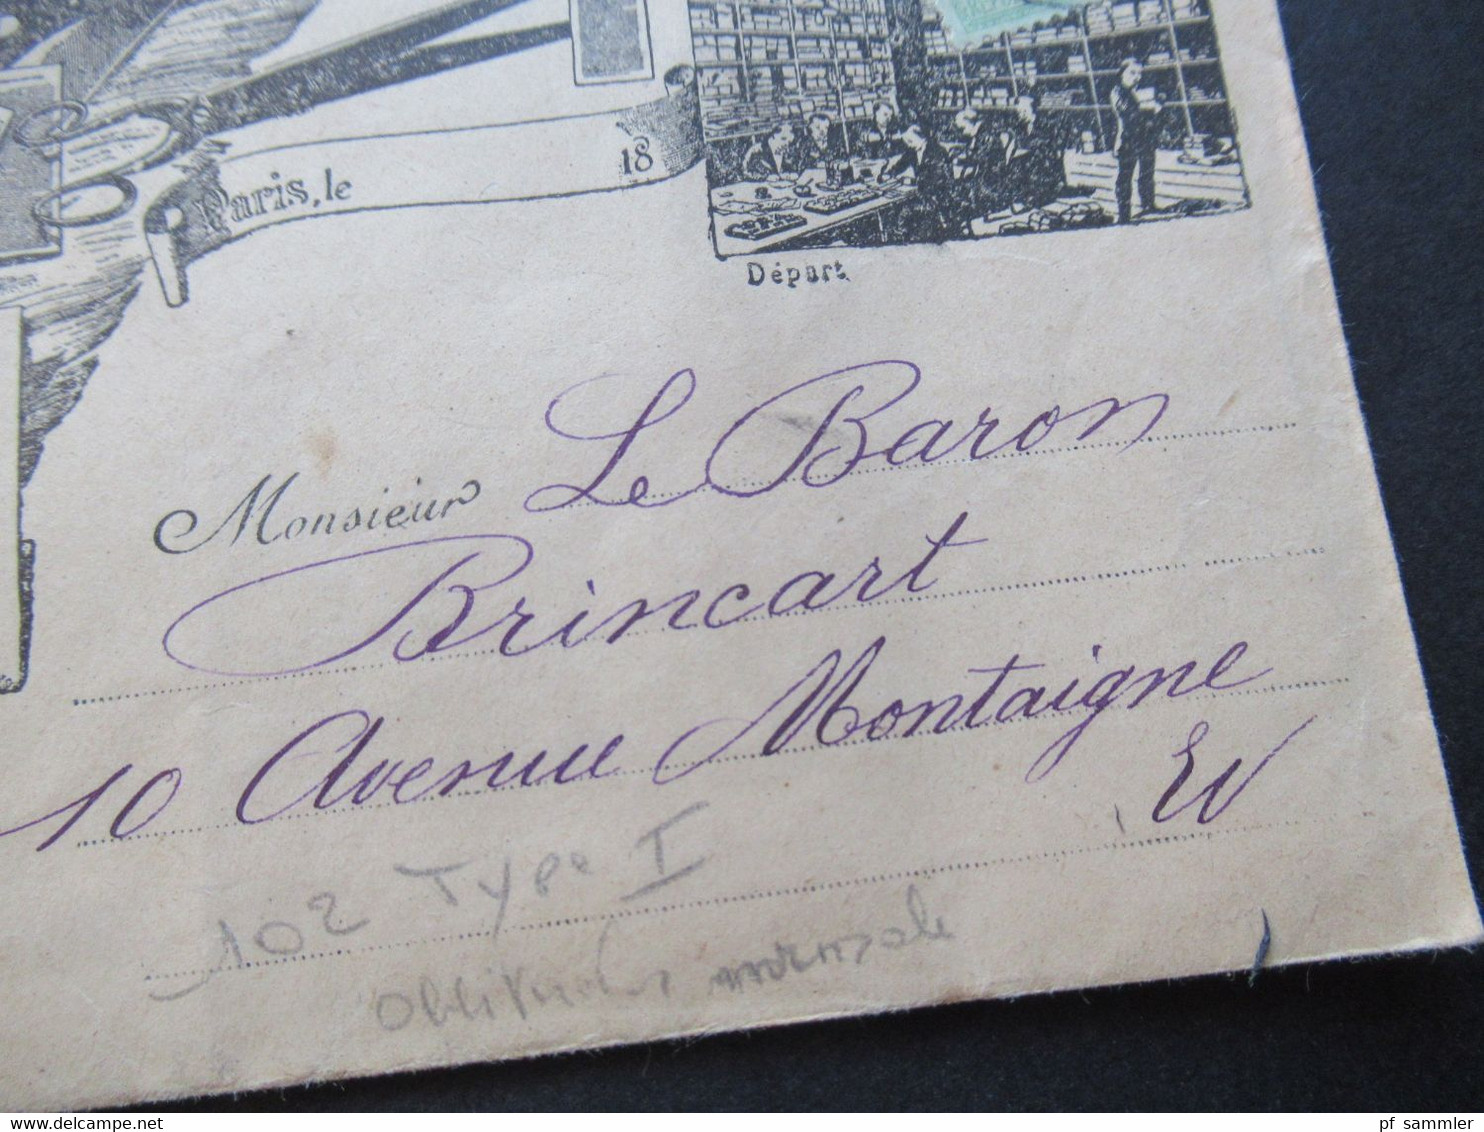 Paris, le 18
Départ
Monsieur Le Baron
Brincart
10 Avenue Montaigne
EV
102 Type I
oblitération normale
pf sammler